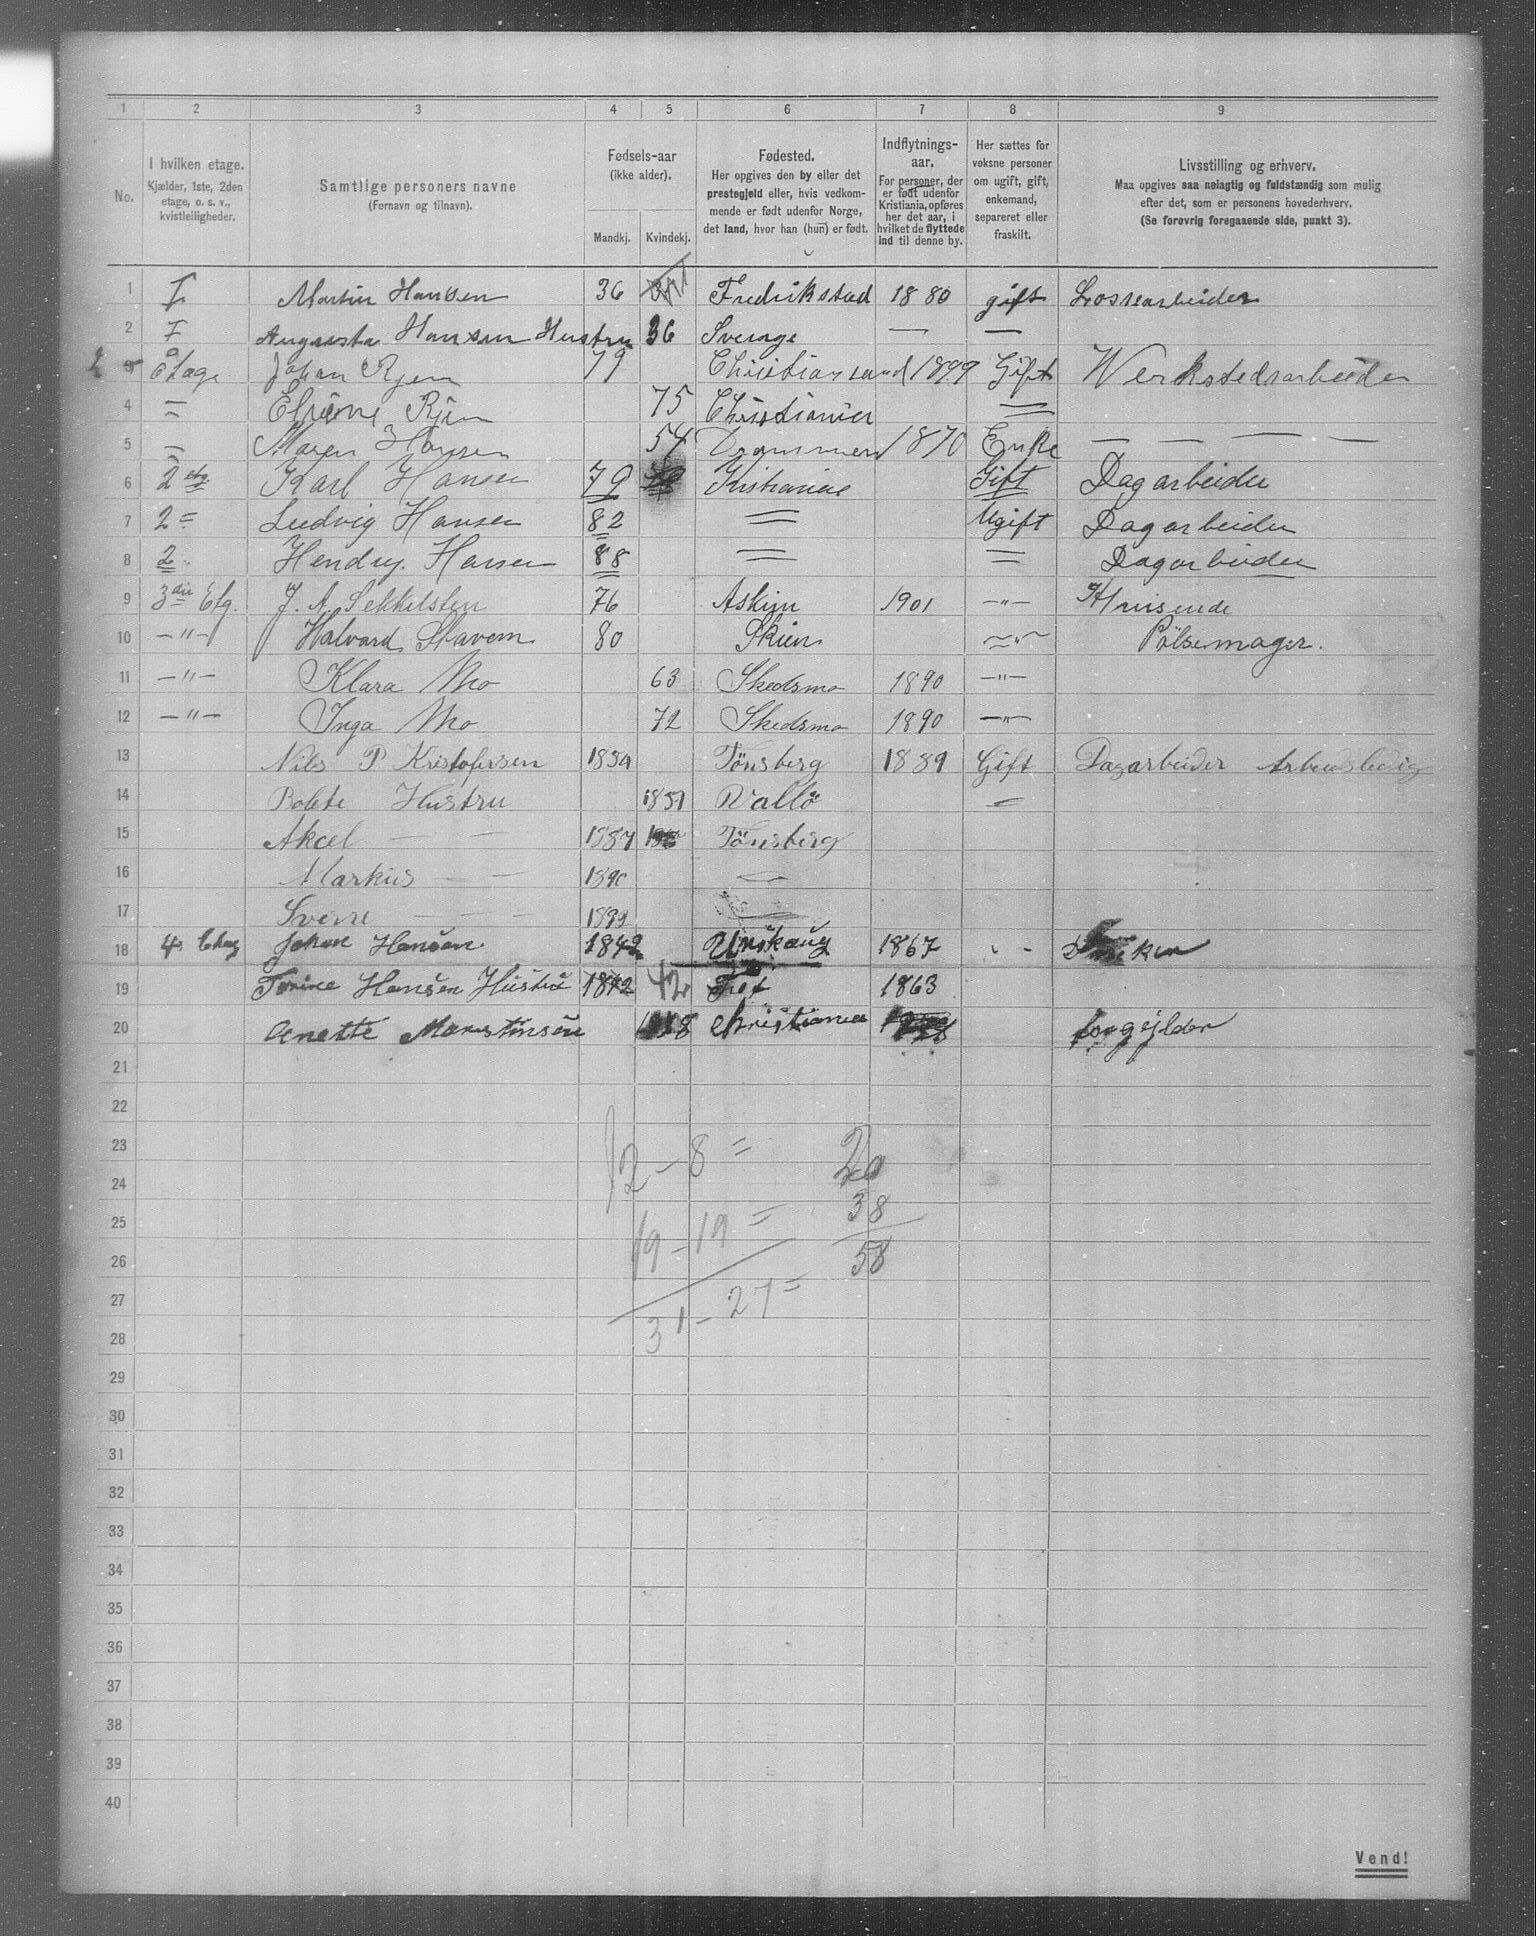 1 2 3 4 5 6 7 8 9
No.
I hvilken etage.
Kjælder, 1ste, 2den
etage, o. s. v.,
kvistleiligheder.
Samtlige personers navne
(Fornavn og tilnavn).
Fødsels-aar
(ikke alder).
Mandkj. Kvindekj.
Fødested.
Her opgives den by eller det
prestegjeld eller, hvis vedkom-
mende er født udenfor Norge,
det land, hvor han (hun) er født.
Indflytnings-
aar.
For personer, der
er født udenfor
Kristiania, opføres
her det aar, i
hvilket de flyttede
ind til denne by.
Her sættes for
voksne personer
om ugift, gift,
enkemand,
separeret eller
fraskilt.
Livsstilling og erhverv.
Maa opgives saa nøiagtig og fuldstændig som mulig
efter det, som er personens hovederhverv.
(Se forøvrig foregaaende side, punkt 3).
1 I Martin Hansen 36 Fredrikstad 1880 gift Lossearbeider
2 I Augusta Hansen Hustru 36 Sverige — —
3 Etage Johan 79 Christiansand 1899 Gift Werkstedsarbeider
4 = 75 Christiania =
5 = Maren Hansen 54 Drammen 1870 Enke — — — —
6 2 etg. Karl Hansen 79 Kristiania Gift Dagarbeider
7 2 = Ludvig Hansen 82 = Ugift Dagarbeider
8 2 " Hendry. Hansen 88 = = Dagarbeider
9 3die Etg. J. A. Sekkelsten 76 Askim 1901 —"— Hvisende
10 —"— Halvard Stavem 80 Skien —"— Pölsemager.
11 —"— Klara Mo 63 Skedsmo 1890 —"—
12 —"— Inga Mo 72 Skedsmo 1890 —"—
13 Nils P Kristofersen 1854 Tönsberg 1889 Gift Dagarbeider Arbeidsledig
14 Bolete Hustru 1851 Vallö —
15 Aksel — — 1887 Tönsberg
16 Markus — — 1890 —
17 Sverre — — — 1899 —
18 4 Etag Johan Hansen 1842 Urskaug 1867 " -
19 Hansen Hustru 1842 42 1863
20 Anette Martinsen Christiania forgylder
21
22
23
24
25
26
27
28
29
30
31
32
33
34
35
36
37
38
39
40
12 - 8 = 20
19 - 19 = 38
31 - 27 = 58
Vend!